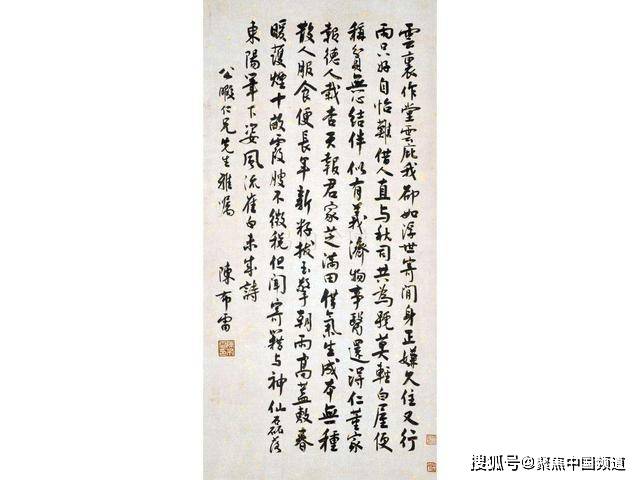 雲裏作堂雲庇我卻如浮世寄閒身正嫌久住又行
雨只好自怡難借人直与秋司共為莫輕白屋便
稱貧無心結伴似有義濟物事醫還得仁董家
報德人栽杏天報君家芝滿田借氣生成本無種
散人服食便長年新拔玉擎朝雨高蓋敷春
暖護煙十畝霞不徵稅但聞寄籍与神仙磊落
東陽筆下姿風流崔白未成詩
公暇仁兄先生雅屬
陳布雷
搜狐号@聚焦中国频道